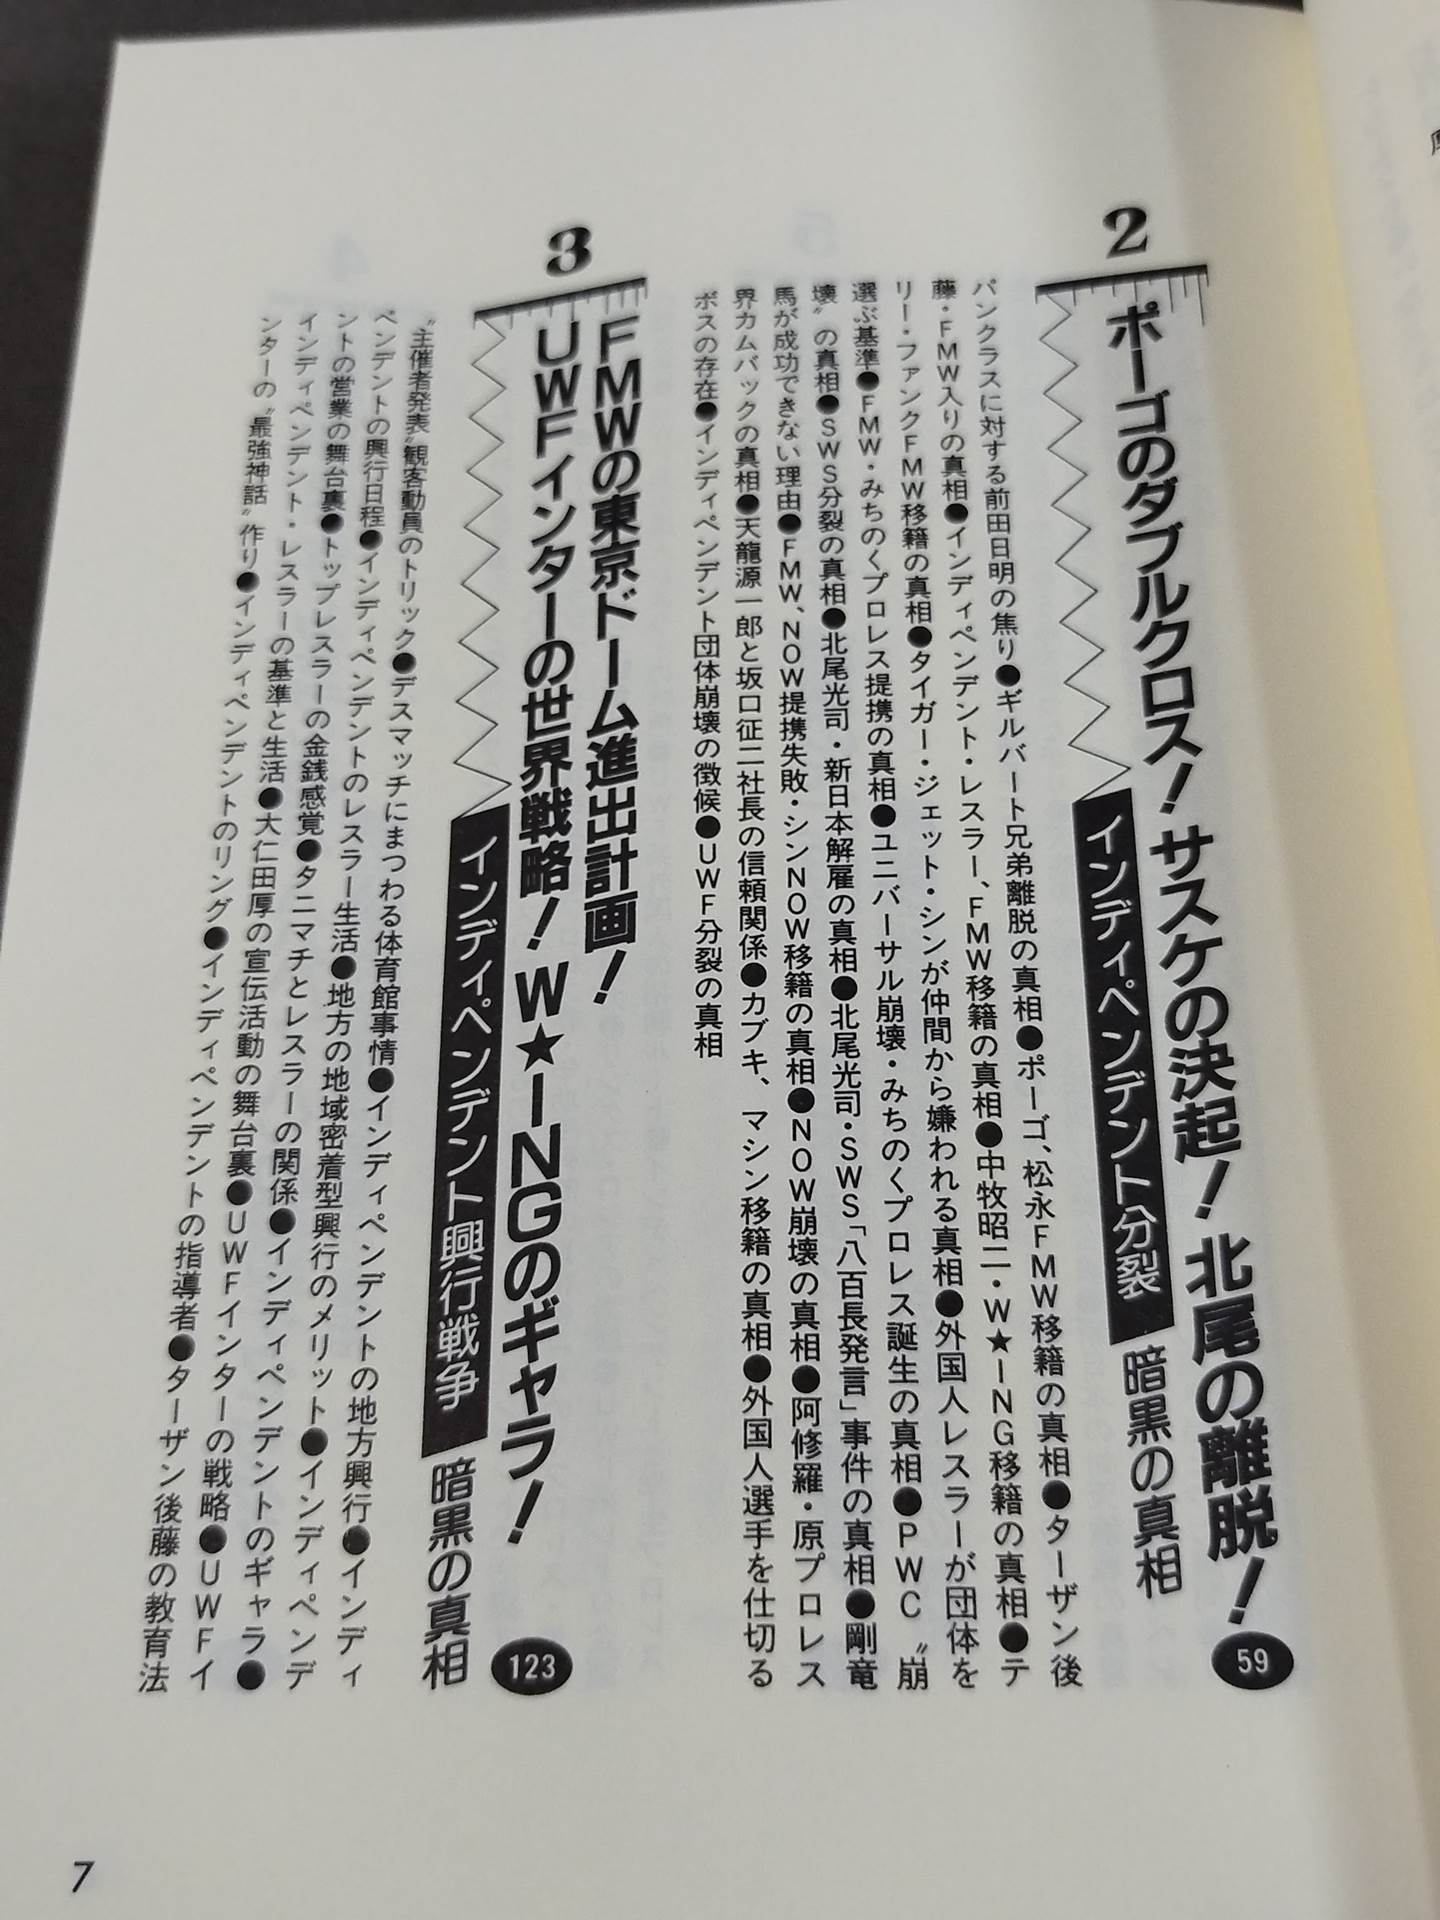 2
ポーゴのダブルクロス！サスケの決起！北尾の離脱！
59
インディペンデント分裂 暗黒の真相
パンクラスに対する前田日明の焦り●ギルバート兄弟離脱の真相●ポーゴ、松永FMW移籍の真相●ターザン後
藤・FMW入りの真相●インディペンデント・レスラー、FMW移籍の真相●中牧昭二・W★ING移籍の真相●テ
リー・ファンクFMW移籍の真相●タイガー・ジェット・シンが仲間から嫌われる真相●外国人レスラーが団体を
選ぶ基準●FMW・みちのくプロレス提携の真相●ユニバーサル崩壊・みちのくプロレス誕生の真相●PWC〝崩
壊〟の真相●SWS分裂の真相●北尾光司・新日本解雇の真相●北尾光司・SWS「八百長発言」事件の真相●剛竜
馬が成功できない理由●FMW、NOW提携失敗・シンNOW移籍の真相●NOW崩壊の真相●阿修羅・原プロレス
界カムバックの真相●天龍源一郎と坂口征二社長の信頼関係●カブキ、マシン移籍の真相●外国人選手を仕切る
ボスの存在●インディペンデント団体崩壊の徴候●UWF分裂の真相
3
FMWの東京ドーム進出計画！
UWFインターの世界戦略！W★INGのギャラ！
123
インディペンデント興行戦争 暗黒の真相
〝主催者発表〟観客動員のトリック●デスマッチにまつわる体育館事情●インディペンデントの地方興行●インディ
ペンデントの興行日程●インディペンデントのレスラー生活●地方の地域密着型興行のメリット●インディペンデ
ントの営業の舞台裏●トップレスラーの金銭感覚●タニマチとレスラーの関係●インディペンデントのギャラ●
インディペンデント・レスラーの基準と生活●大仁田厚の宣伝活動の舞台裏●UWFインターの戦略●UWFイ
ンターの〝最強神話〟作り●インディペンデントのリング●インディペンデントの指導者●ターザン後藤の教育法
7